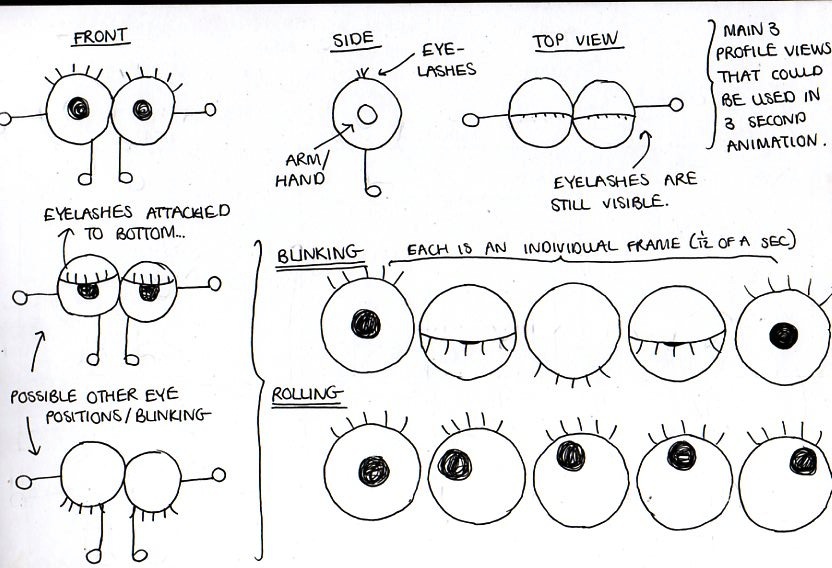 FRONT
SIDE
EYE-
LASHES
ARM/
HAND
TOP VIEW
EYELASHES ARE
STILL VISIBLE.
MAIN 3
PROFILE VIEWS
THAT COULD
BE USED IN
3 SECOND
ANIMATION.
EYELASHES ATTACHED
TO BOTTOM...
POSSIBLE OTHER EYE
POSITIONS/BLINKING
BLINKING
EACH IS AN INDIVIDUAL FRAME (1/12 OF A SEC)
ROLLING